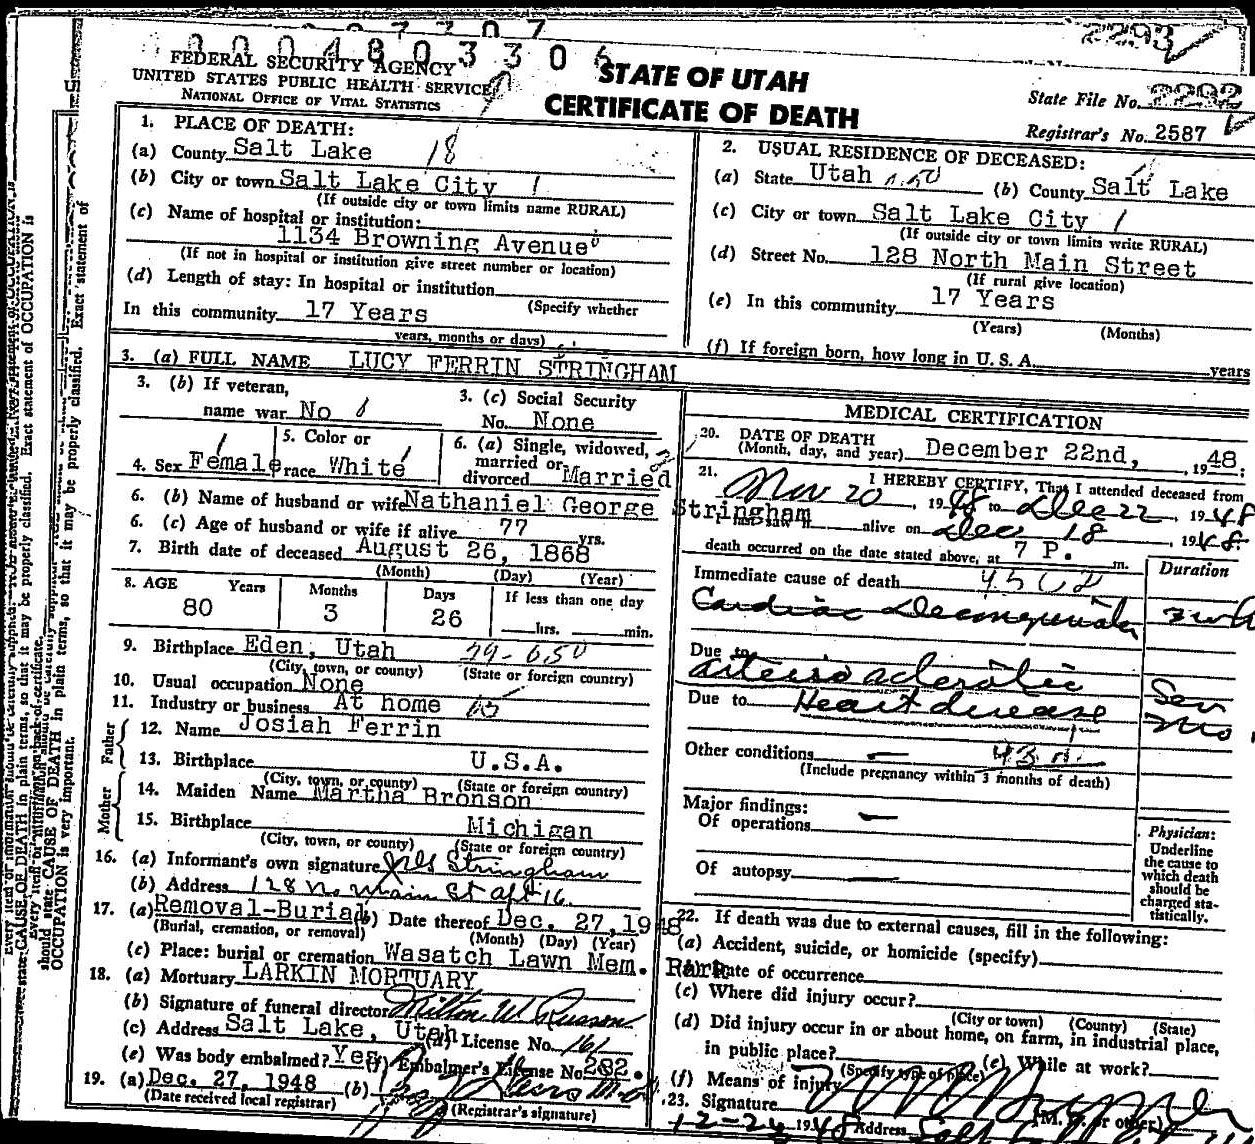 2293
0004803306
FEDERAL SECURITY AGENCY
UNITED STATES PUBLIC HEALTH SERVICE
NATIONAL OFFICE OF VITAL STATISTICS
STATE OF UTAH
CERTIFICATE OF DEATH
State File No. 2292
Registrar's No. 2587
1. PLACE OF DEATH:
(a) County Salt Lake 18
(b) City or town Salt Lake City 1
(If outside city or town limits name RURAL)
(c) Name of hospital or institution:
1134 Browning Avenue
(If not in hospital or institution give street number or location)
(d) Length of stay: In hospital or institution
(Specify whether
In this community 17 Years
years, months or days)
2. USUAL RESIDENCE OF DECEASED:
(a) State Utah (b) County Salt Lake
(c) City or town Salt Lake City 1
(If outside city or town limits write RURAL)
(d) Street No. 128 North Main Street
(If rural give location)
(e) In this community 17 Years
(Years) (Months)
(f) If foreign born, how long in U. S. A. years
3. (a) FULL NAME LUCY FERRIN STRINGHAM
3. (b) If veteran,
name war No
3. (c) Social Security
No. None
4. Sex Female
5. Color or
race White
6. (a) Single, widowed,
married or
divorced Married
6. (b) Name of husband or wife Nathaniel George Stringham
6. (c) Age of husband or wife if alive 77 yrs.
7. Birth date of deceased August 26, 1868
(Month) (Day) (Year)
8. AGE Years Months Days If less than one day
80 3 26 hrs. min.
9. Birthplace Eden, Utah
(City, town, or county) (State or foreign country)
10. Usual occupation None
11. Industry or business At home
Father
12. Name Josiah Ferrin
13. Birthplace U.S.A.
(City, town, or county) (State or foreign country)
Mother
14. Maiden Name Martha Bronson
15. Birthplace Michigan
(City, town, or county) (State or foreign country)
16. (a) Informant's own signature Stringham
(b) Address 128 No Main St apt 16
17. (a) Removal-Burial (b) Date thereof Dec. 27, 1948
(Burial, cremation, or removal) (Month) (Day) (Year)
(c) Place: burial or cremation Wasatch Lawn Mem. Park
18. (a) Mortuary LARKIN MORTUARY
(b) Signature of funeral director Milton W.
(c) Address Salt Lake, Utah (d) License No. 161
(e) Was body embalmed? Yes (f) Embalmer's License No. 282.
19. (a) Dec. 27, 1948 (b)
(Date received local registrar) (Registrar's signature)
MEDICAL CERTIFICATION
20. DATE OF DEATH
(Month, day, and year) December 22nd, 1948.
21. I HEREBY CERTIFY, That I attended deceased from
Nov 20, 1948 to Dec 22, 1948
I last saw h alive on Dec 18 1948.
death occurred on the date stated above, at 7 P. m.
Immediate cause of death
Duration
Cardiac
Due to
arteriosclerotic
Due to Heart disease
Other conditions
(Include pregnancy within 3 months of death)
Major findings:
Of operations
Of autopsy
Physician:
Underline
the cause to
which death
should be
charged sta-
tistically.
22. If death was due to external causes, fill in the following:
(a) Accident, suicide, or homicide (specify)
(b) Date of occurrence
(c) Where did injury occur?
(City or town) (County) (State)
(d) Did injury occur in or about home, on farm, in industrial place,
in public place? (e) While at work?
(Specify type of place)
(f) Means of injury
23. Signature (M. D. or other)
12-24 1948 Address Salt
should state CAUSE OF DEATH in plain terms, so that it may be properly classified. Exact statement of
OCCUPATION is very important.